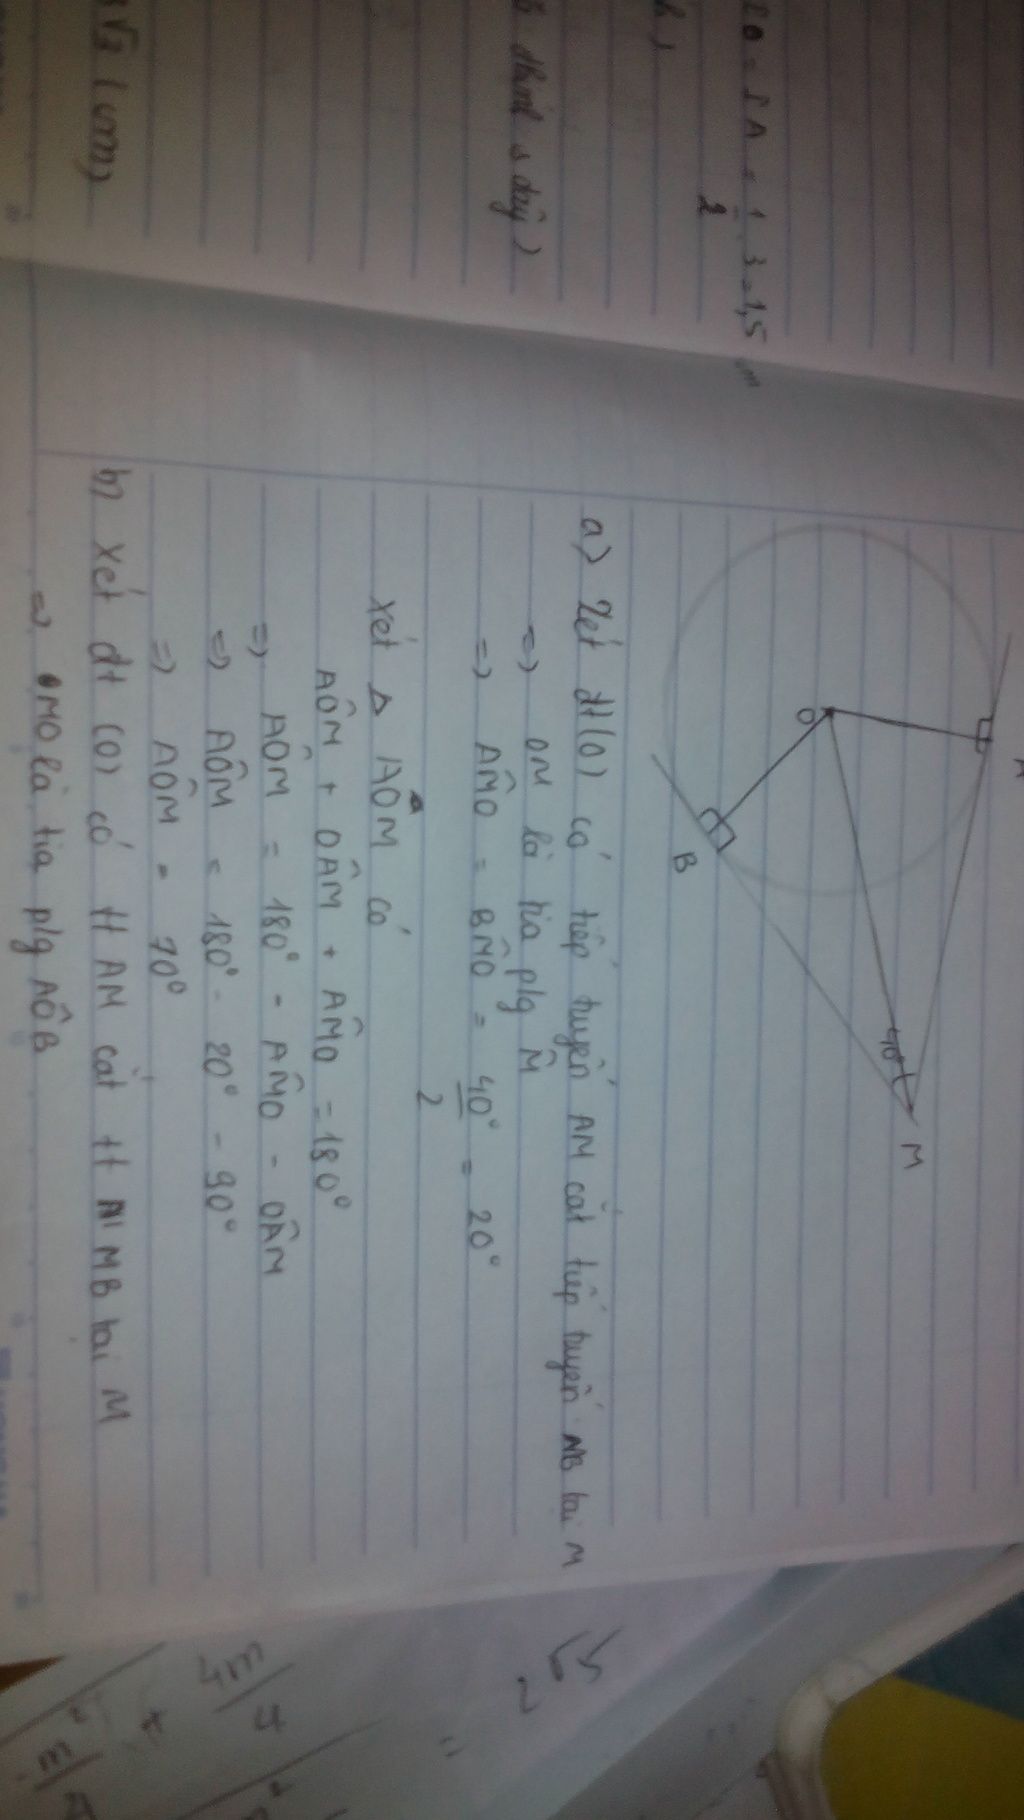 IO = IA = 1/2 . 3 = 1,5 cm
√3 (cm)
A
O
B
M
40°
a) Xét đt(O) có tiếp tuyến AM cắt tiếp tuyến MB tại M
=) OM là tia p/g M̂
=) AM̂O = BM̂O = 40°/2 = 20°
Xét Δ AOM có
AÔM + OÂM + AM̂O = 180°
=) AÔM = 180° - AM̂O - OÂM
=) AÔM = 180° - 20° - 90°
=) AÔM = 70°
b) Xét đt (O) có tt AM cắt tt MB tại M
=) MO là tia p/g AÔB